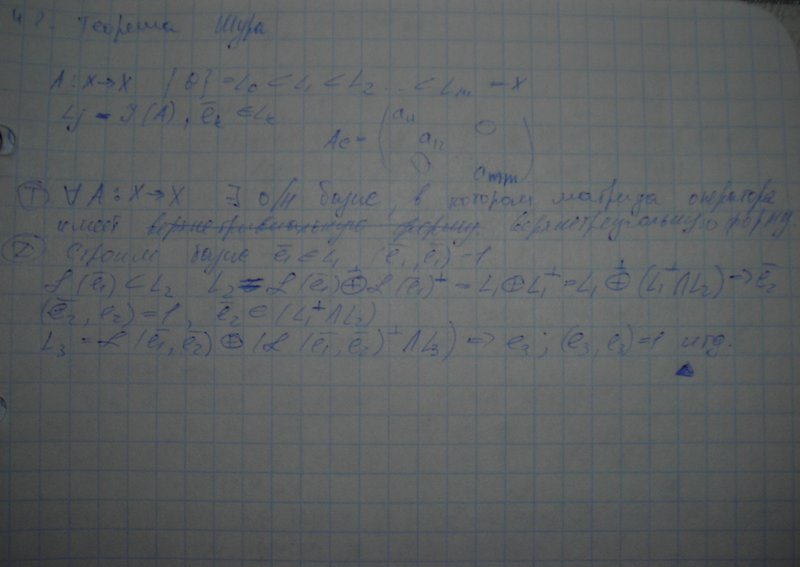 Теорема Шура
A : X → X {0} = L₀ < L₁ < L₂ ... < Lₘ = X
Lⱼ - J(A),
Ae = ( a₁₁ 0
a₁₂
0 amm )
Ⓣ ∀ A : X → X ∃ о/н базис, в котором матрица оператора
имеет верхнетреугольную форму.
Строим базис e̅₁ ∈ L₁ (e̅₁, e̅₁) = 1
ℒ(e̅₁) < L₂ L₂ = ℒ(e̅₁) ⊕ ℒ(e̅₁)^⊥ = L₁ ⊕ L₁^⊥ = L₁ ⊕ (L₁^⊥ ∩ L₂) ⇒ e̅₂
(e̅₂, e̅₂) = 1, e̅₂ ∈ (L₁^⊥ ∩ L₂)
L₃ = ℒ(e̅₁, e̅₂) ⊕ (ℒ(e̅₁, e̅₂)^⊥ ∩ L₃) ⇒ e₃ ; (e₃, e₃) = 1 итд.